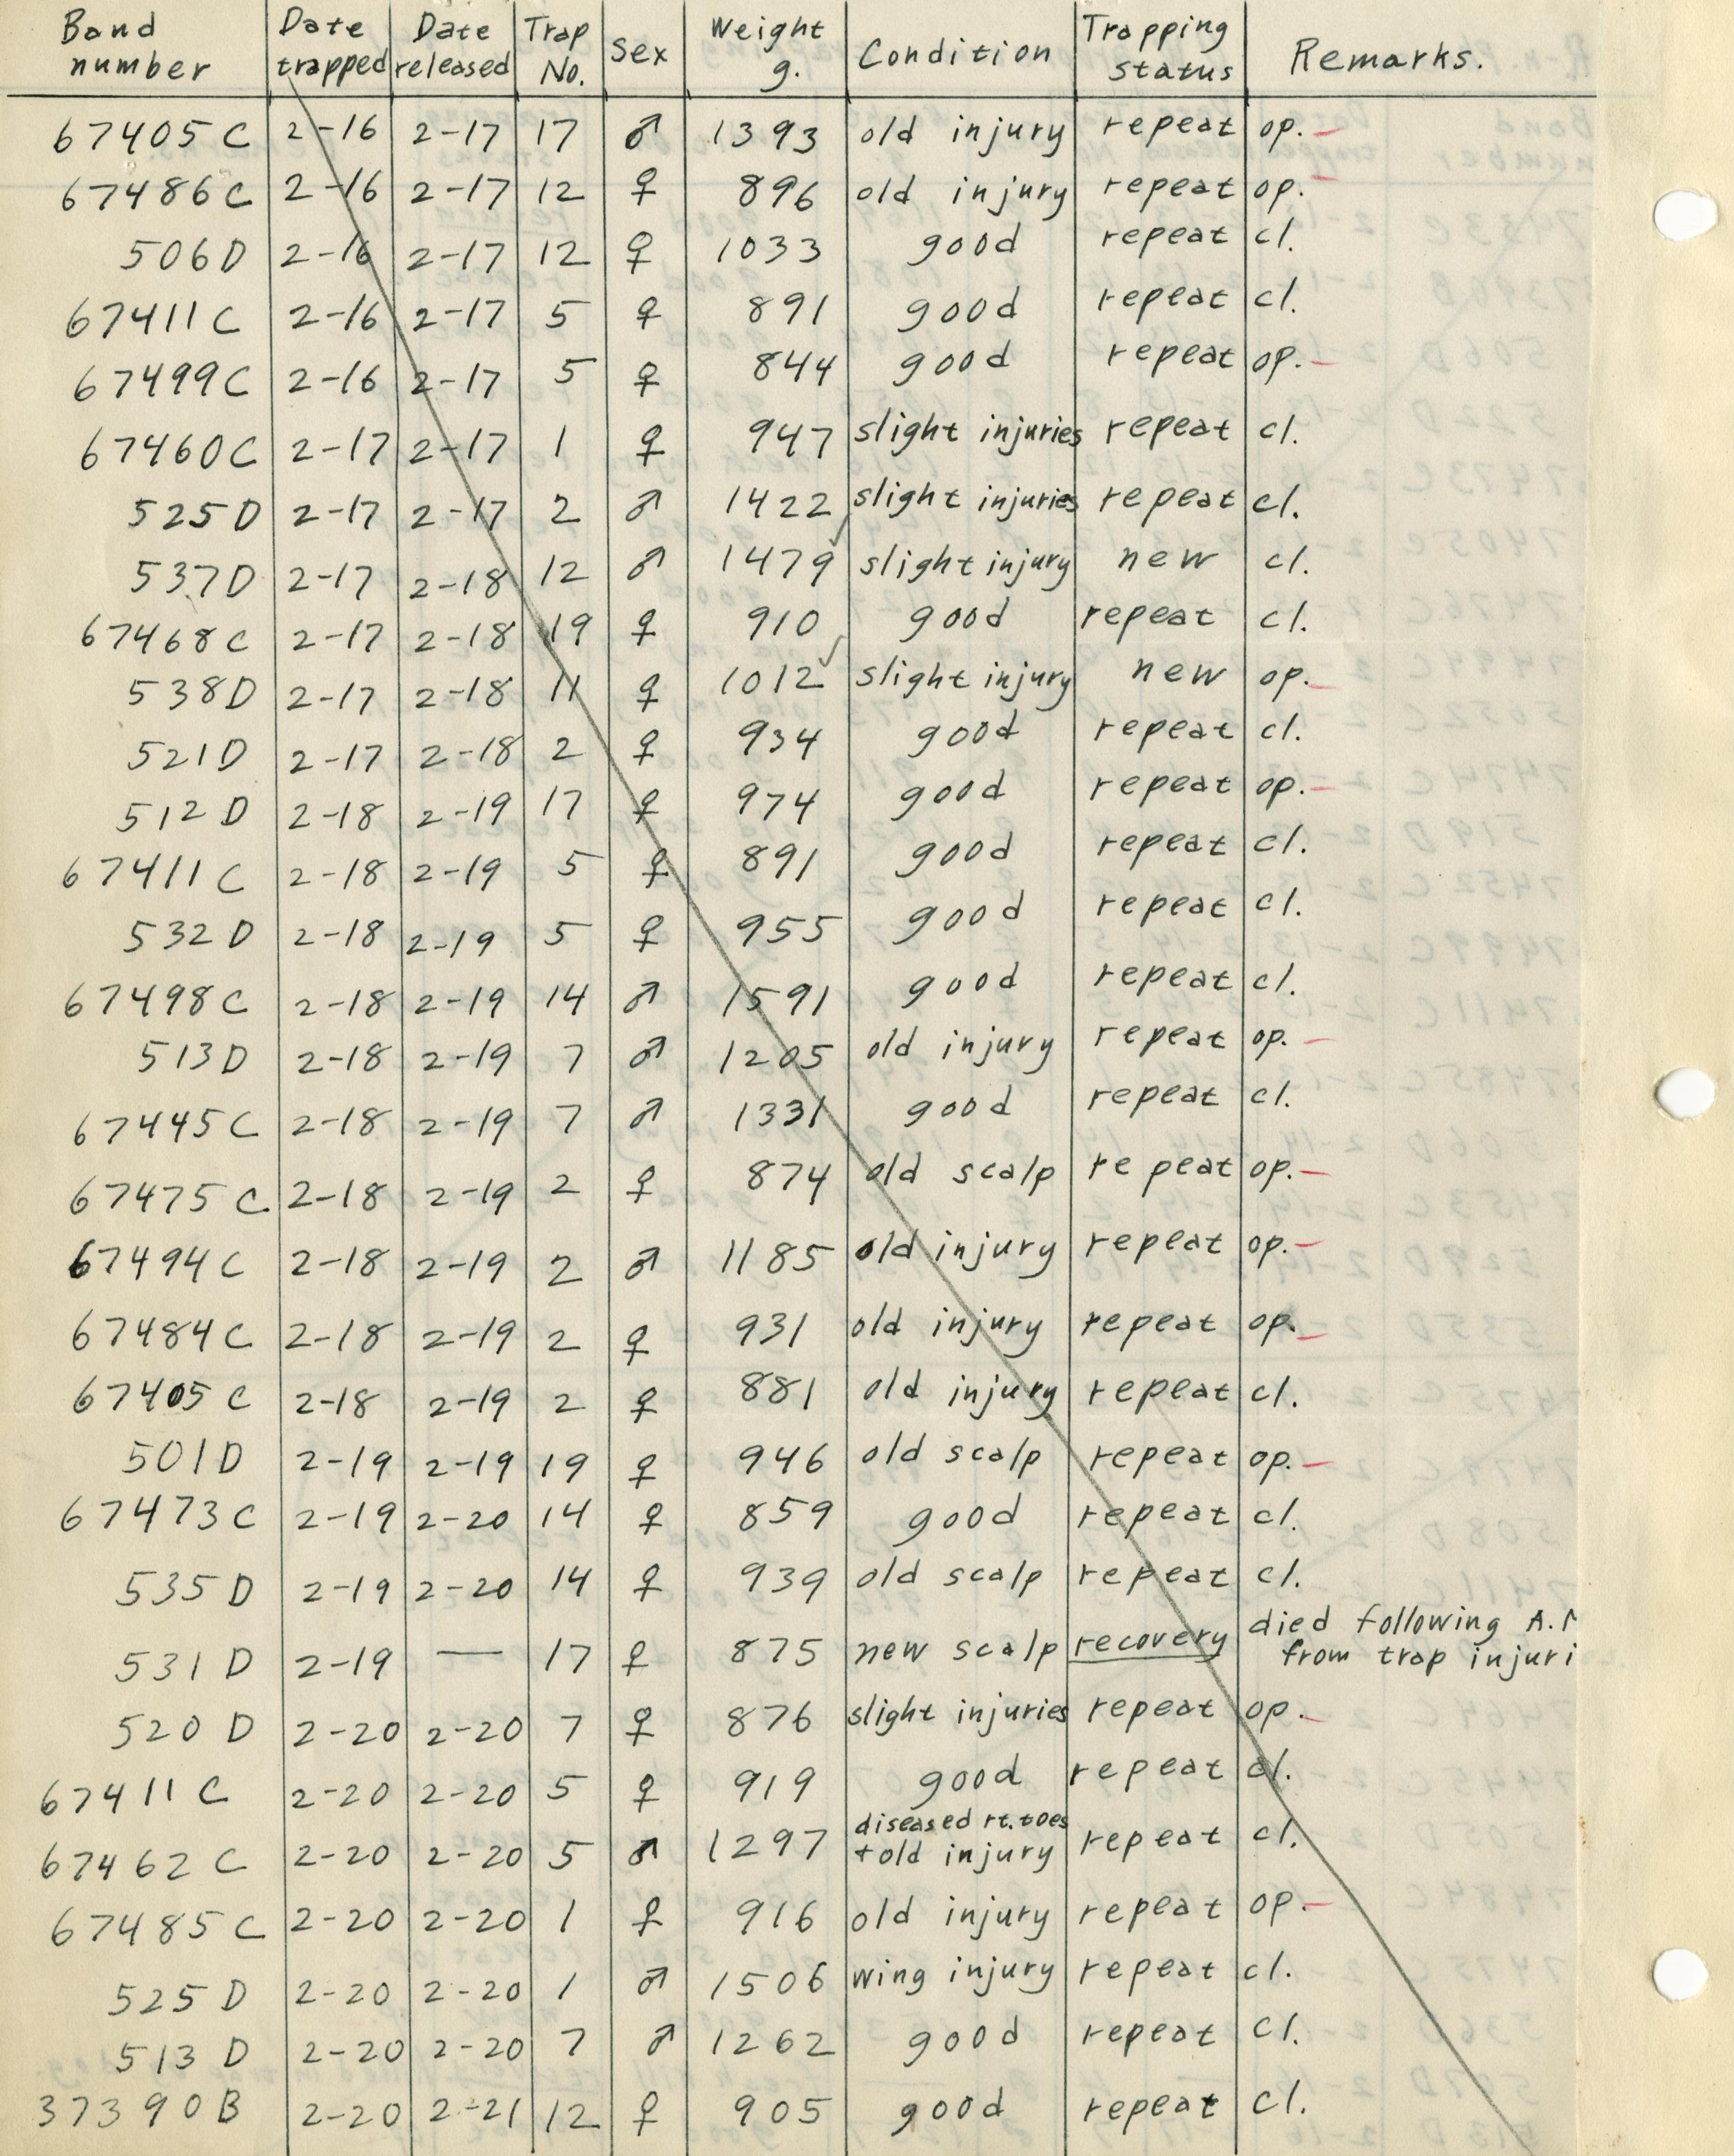 Band number | Date trapped | Date released | Trap No. | Sex | Weight g. | Condition | Trapping status | Remarks.
67405 C | 2-16 | 2-17 | 17 | ♂ | 1393 | old injury | repeat | op. –
67486 C | 2-16 | 2-17 | 12 | ♀ | 896 | old injury | repeat | op. –
506 D | 2-16 | 2-17 | 12 | ♀ | 1033 | good | repeat | cl.
67411 C | 2-16 | 2-17 | 5 | ♀ | 891 | good | repeat | cl.
67499 C | 2-16 | 2-17 | 5 | ♀ | 844 | good | repeat | op. –
67460 C | 2-17 | 2-17 | 1 | ♀ | 947 | slight injuries | repeat | cl.
525 D | 2-17 | 2-17 | 2 | ♂ | 1422 | slight injuries | repeat | cl.
537 D | 2-17 | 2-18 | 12 | ♂ | 1479 ✓ | slight injury | new | cl.
67468 C | 2-17 | 2-18 | 19 | ♀ | 910 | good | repeat | cl.
538 D | 2-17 | 2-18 | 11 | ♀ | 1012 ✓ | slight injury | new | op. –
521 D | 2-17 | 2-18 | 2 | ♀ | 934 | good | repeat | cl.
512 D | 2-18 | 2-19 | 17 | ♀ | 974 | good | repeat | op. –
67411 C | 2-18 | 2-19 | 5 | ♀ | 891 | good | repeat | cl.
532 D | 2-18 | 2-19 | 5 | ♀ | 955 | good | repeat | cl.
67498 C | 2-18 | 2-19 | 14 | ♂ | 1591 | good | repeat | cl.
513 D | 2-18 | 2-19 | 7 | ♂ | 1205 | old injury | repeat | op. –
67445 C | 2-18 | 2-19 | 7 | ♂ | 1331 | good | repeat | cl.
67475 C. | 2-18 | 2-19 | 2 | ♀ | 874 | old scalp | repeat | op. –
67494 C | 2-18 | 2-19 | 2 | ♂ | 1185 | old injury | repeat | op. –
67484 C | 2-18 | 2-19 | 2 | ♀ | 931 | old injury | repeat | op. –
67405 C | 2-18 | 2-19 | 2 | ♀ | 881 | old injury | repeat | cl.
501 D | 2-19 | 2-19 | 19 | ♀ | 946 | old scalp | repeat | op. –
67473 C | 2-19 | 2-20 | 14 | ♀ | 859 | good | repeat | cl.
535 D | 2-19 | 2-20 | 14 | ♀ | 939 | old scalp | repeat | cl.
531 D | 2-19 | — | 17 | ♀ | 875 | new scalp | recovery | died following A. from trap injuri
520 D | 2-20 | 2-20 | 7 | ♀ | 876 | slight injuries | repeat | op. –
67411 C | 2-20 | 2-20 | 5 | ♀ | 919 | good | repeat | cl.
67462 C | 2-20 | 2-20 | 5 | ♂ | 1297 | diseased rt. toes + old injury | repeat | cl.
67485 C | 2-20 | 2-20 | 1 | ♀ | 916 | old injury | repeat | op. –
525 D | 2-20 | 2-20 | 1 | ♂ | 1506 | wing injury | repeat | cl.
513 D | 2-20 | 2-20 | 7 | ♂ | 1262 | good | repeat | cl.
37390 B | 2-20 | 2-21 | 12 | ♀ | 905 | good | repeat | cl.